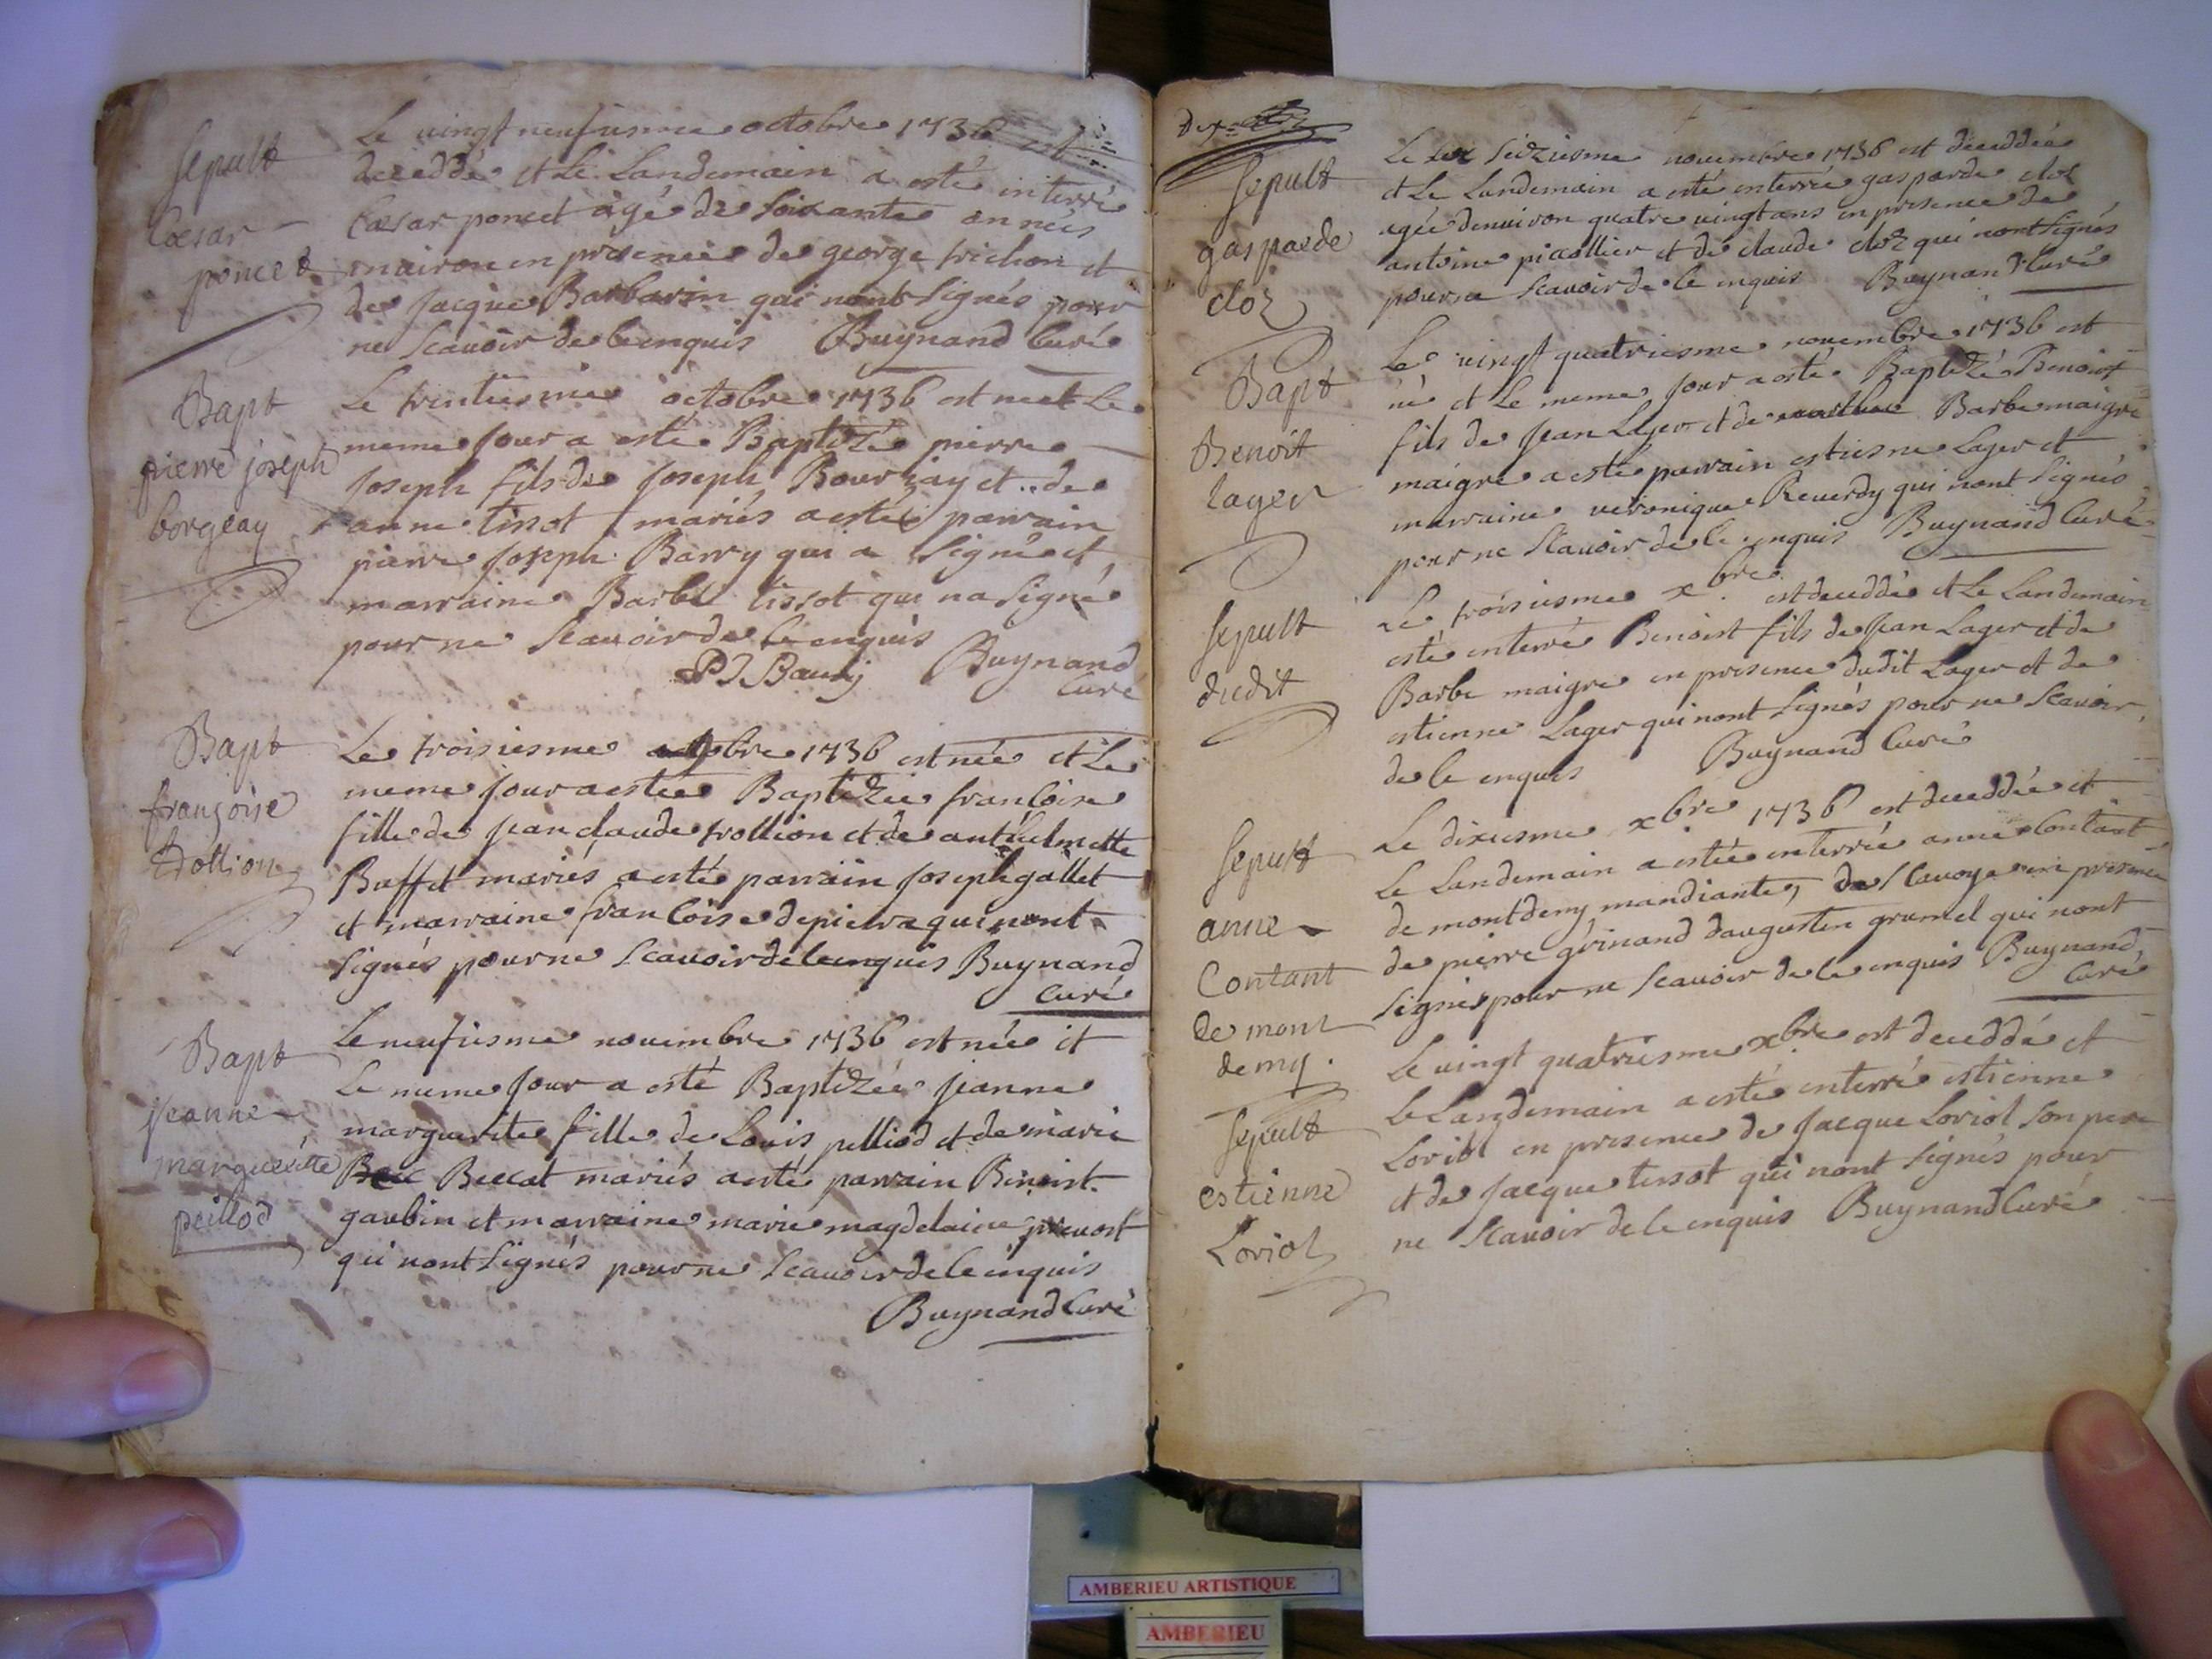 Sepult
Cæsar
poncet
Le vingt neufiesme octobre 1736 est
deceddé et Le Landemain a esté interré
Cæsar poncet agé de soixante années
enuiron en presence de george trichon et
de Jacque Barbarin qui nont signés pour
ne scauoir de ce enquis Buynand Curé
Bapt
pierre joseph
borgeay
Le trentiesme octobre 1736 est ne et Le
meme Jour a esté Baptizé pierre
Joseph fils de Joseph Bourjay et de
anne tissot mariés a esté parrain
pierre Joseph Barry qui a signé et
marraine Barbe tissot qui na signé
pour ne scauoir de ce enquis
PJ Buynand
Curé
Bapt
françoise
trollion
Le troisiesme 1736 est née et Le
meme Jour a esteé Baptizée francoise
fille de Jean claude trollion et de anthelmette
Buffet mariés a esté parrain Joseph gallet
et marraine francoise depierra qui nont
signés pour ne scauoir de ce enquis Buynand
Curé
Bapt
jeanne
margueritte
peillod
Le neufiesme nouembre 1736 est née et
Le meme Jour a esté Baptizée Jeanne
marguerite fille de Louis pelliod et de marie
Beccat mariés a esté parrain Benoist
gaubin et marraine marie magdelaine preuost
qui nont signés pour ne scauoir de ce enquis
Buynand Curé
Sepult
gasparde
cloz
Le seiziesme nouembre 1736 est deceddée
et Le Landemain a esté enterrée gasparde cloz
agée denuiron quatre uingt ans en presence de
antoine picollier et de claude cloz qui nont signés
pour ce scauoir de ce enquis Buynand Curé
Bapt
Benoit
lager
Le vingt quatriesme nouembre 1736 est
né et Le meme Jour a esté Baptizé Benoist
fils de Jean Lager et de Barbe maigre
maigre a esté parrain estiesne Lager et
marraine veronique Reuerdy qui nont signés
pour ne scauoir de ce enquis Buynand Curé
Sepult
dudit
Le troisiesme xbre est deceddé et Le Landemain
esté enterré Benoist fils de Jean Lager et de
Barbe maigre en presence dudit Lager et de
estienne Lager qui nont signés pour ne scauoir
de ce enquis Buynand Curé
Sepult
anne
Contant
de mont
deny
Le dixiesme xbre 1736 est deceddée et
Le Landemain a estée enterrée anne Contant
de montdeny mandiante, de scauoye en presence
de pierre gérinand daugustin grumel qui nont
signés pour ne scauoir de ce enquis Buynand
Curé
Sepult
estienne
Loriol
Le vingt quatriesme xbre est deceddé et
Le Landemain a esté enterré estienne
Loriol en presence de Jacque Loriol son pere
et de Jacque tissot qui nont signés pour
ne scauoir de ce enquis Buynand Curé
AMBERIEU ARTISTIQUE
AMBERIEU